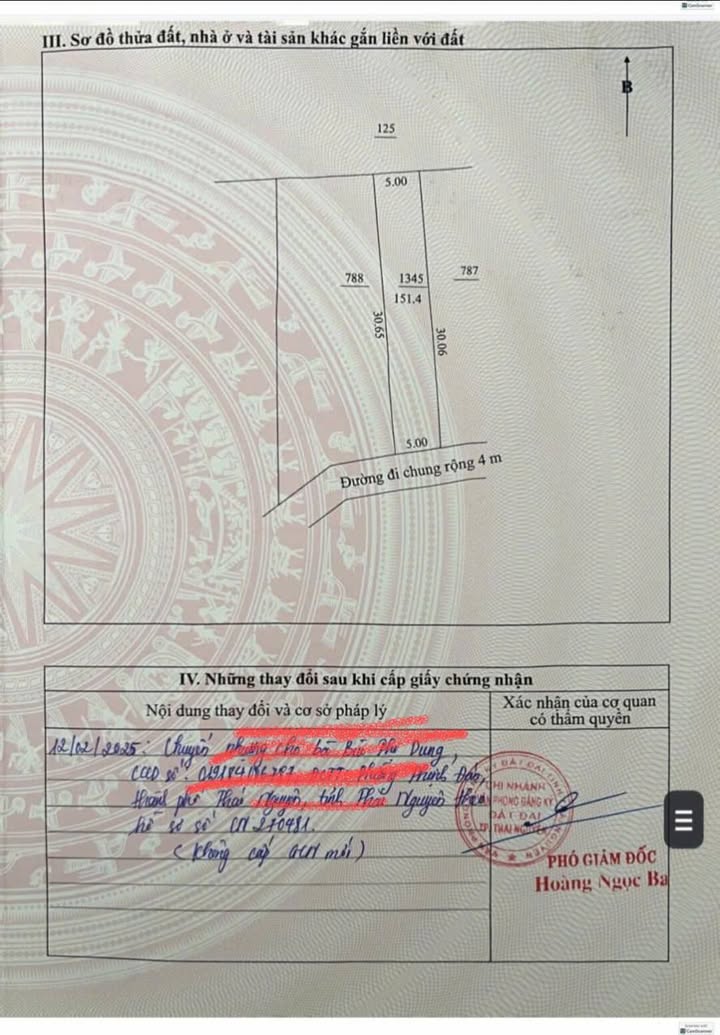 CamScanner
III. Sơ đồ thửa đất, nhà ở và tài sản khác gắn liền với đất
B
125
5.00
788
1345
151.4
787
30.65
30.06
5.00
Đường đi chung rộng 4 m
IV. Những thay đổi sau khi cấp giấy chứng nhận
Nội dung thay đổi và cơ sở pháp lý
Xác nhận của cơ quan
có thẩm quyền
12/02/2025: Chuyển nhượng cho bà Bùi Dung,
CCCD số: Minh Đảo,
thành phố Thái Nguyên, tỉnh Thái Nguyên theo
hồ sơ số CN 270481.
(Không cấp GCN mới)
CHI NHÁNH
VĂN PHÒNG ĐĂNG KÝ
ĐẤT ĐAI
TP THÁI NGUYÊN
PHÓ GIÁM ĐỐC
Hoàng Ngọc Ba
CamScanner